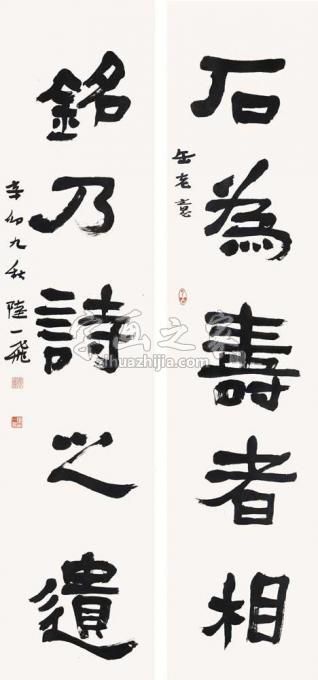 石為壽者相
缶老意
銘乃詩之遺
辛卯九秋 陸一飛
字画之家
zihuazhijia.com